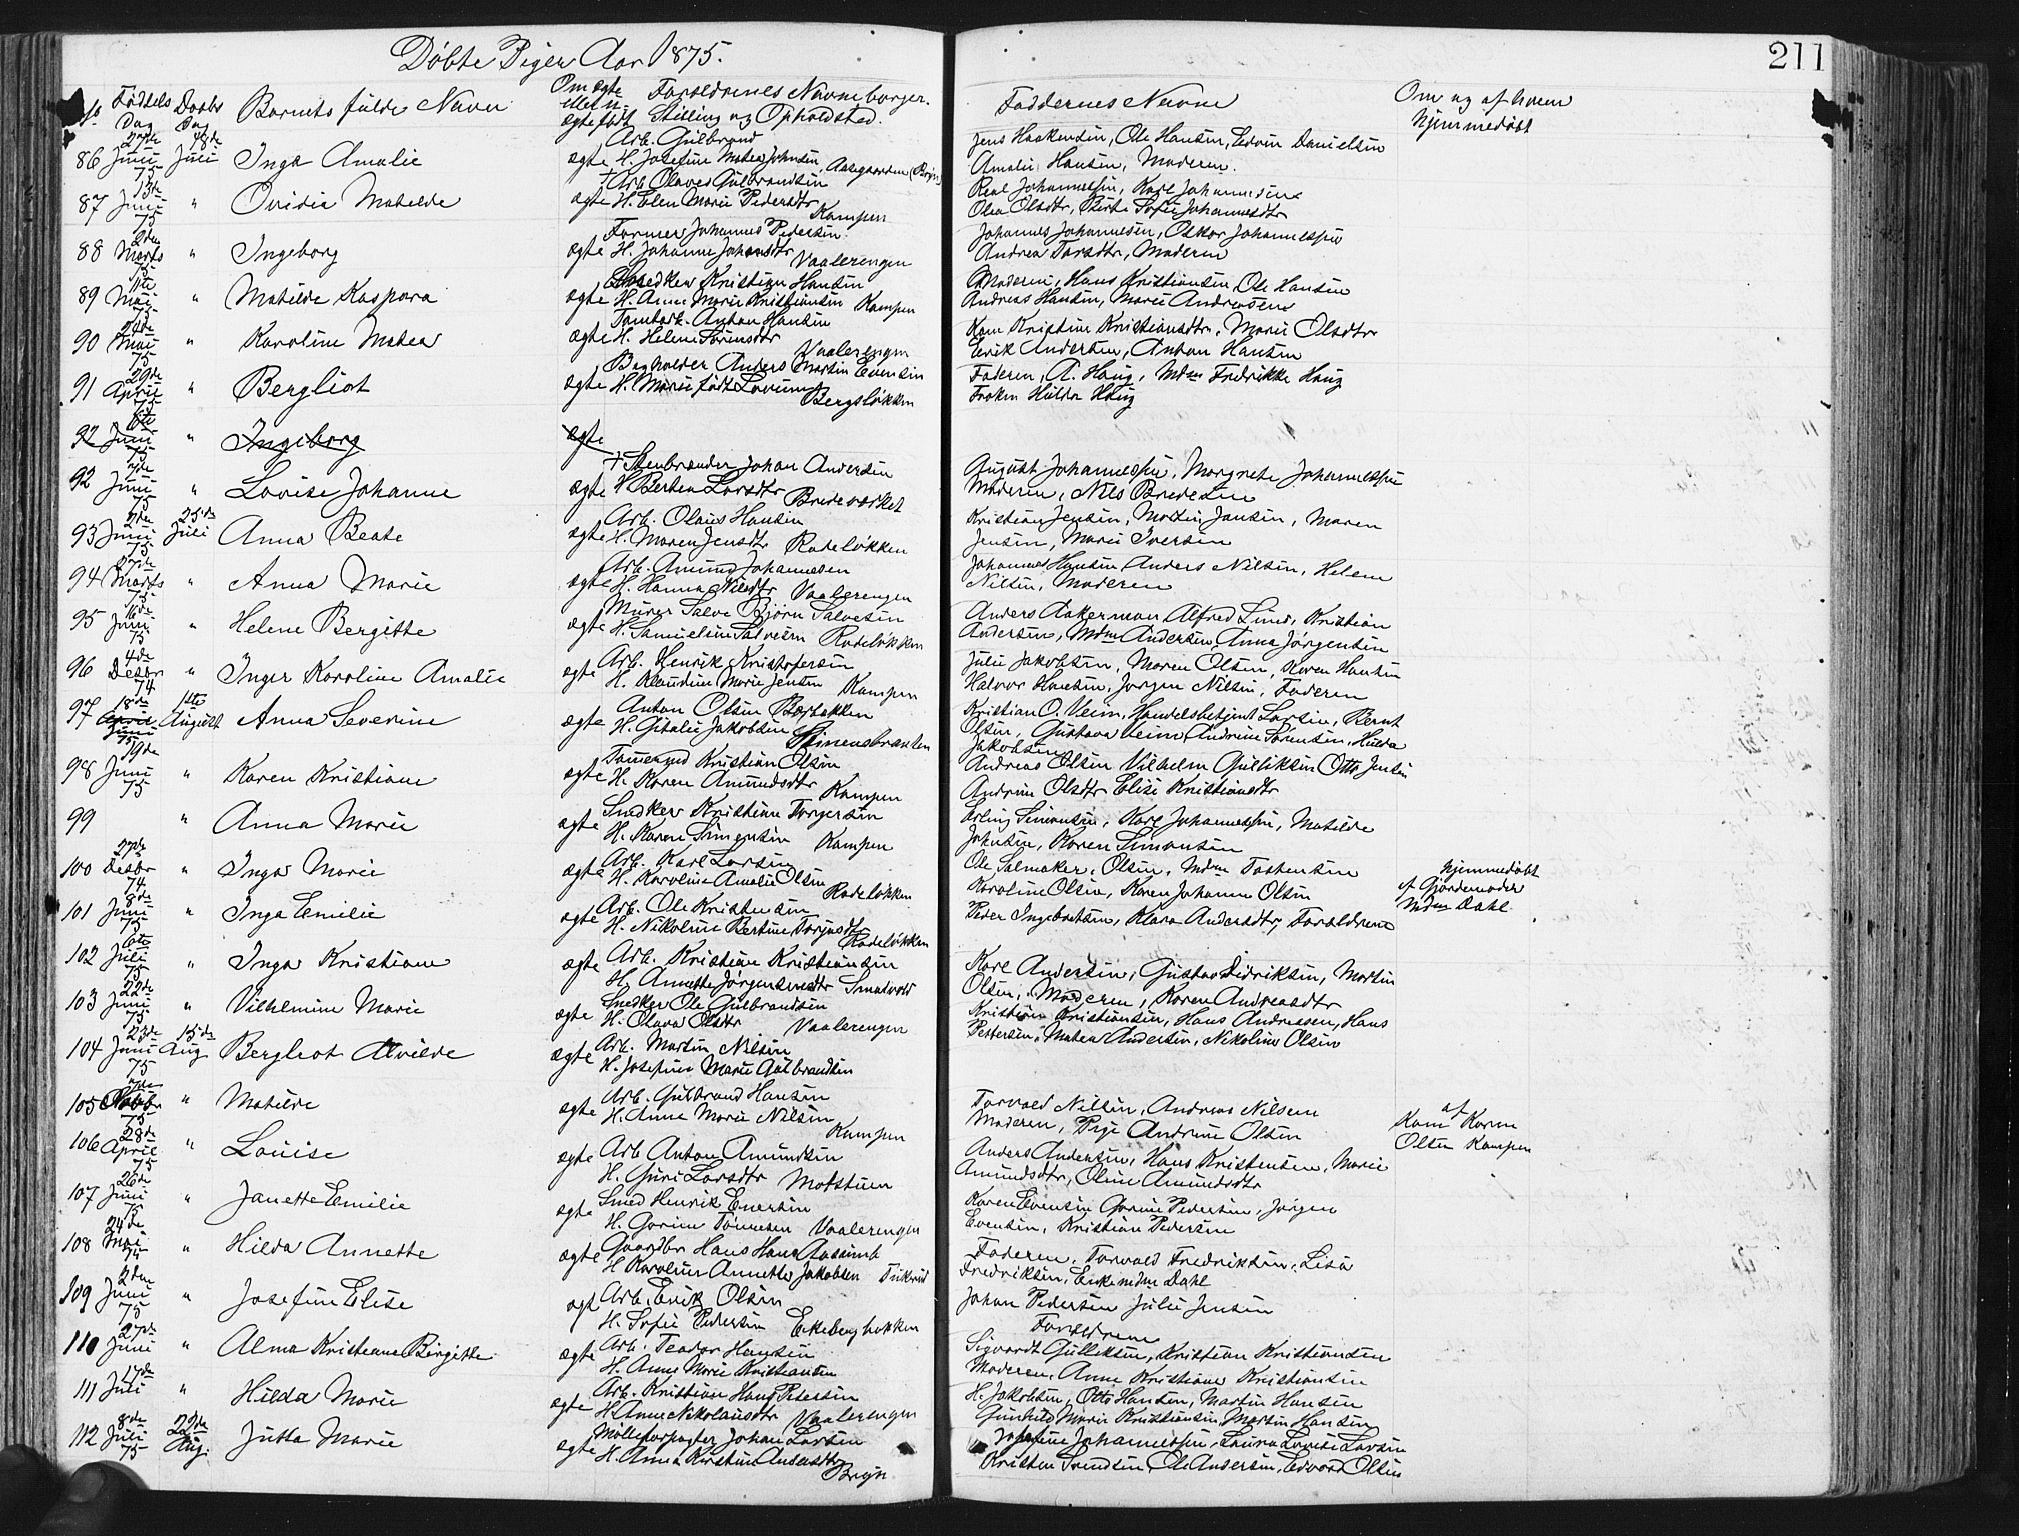 Døbte Piger Aar 1875.
211
No Fødsels Dag Daabs Dag Barnets fulde Navn Om ægte eller u-ægte født Forældrenes Navne borger. Stilling og Opholdsted. Faddernes Navne Om og af hvem hjemmedøbt
86 27de Juni 75 Juli Inga Amalie ægte Arb. Gulbrand
H. Josefine Matea Johnsen, Aasegaarden (Bryn)
Jens Haakensen, Ole Hansen, Edvin Danielsen
Amalie Hansen, Moderen.
87 13de Juni 75 " Ovidia Matilde ægte Arb. Olaves Gulbrandsen
H. Elen Marie Pedersdtr Kampen
Johannessen, Karl Johannesen
Olea Olsdtr, Berte Sofie Johannesdtr
88 2den Marts 75 " Ingeborg ægte Former Johannes Pedersen
H. Johanne Johansdtr Vaalerengen
Johannes Johannesen, Oskar Johannessen
Andrea Larsdtr, Moderen
89 11te Mai 75 " Matilde Kaspara ægte Snedker Kristian Hansen
H. Anne Marie Kristiansen Kampen
Moderen, Hans Kristiansen, Ole Hansen
Andreas Hansen, Marie Andreasen
90 24de Mai 75 " Karoline Matea ægte Tomtarb. Anton Hansen
H. Helene Sørensdtr Vaalerengen
Kone Kristine Kristiansdtr, Marie Olsdtr
Henrik Andersen, Anton Hansen
91 29de April 75 " Bergliot ægte Bogholder Anders Martin Evensen
H. Marie født Lorum Bergsløkken
Faderen, A. Haug, Mdm Fredrikke Haug
Frøken Hulda Haug
92 6te Juni 75 " Ingeborg ægte
92 7de Juni 75 " Lovise Johanne ægte Stenbryder Johan Andersen
H Berthea Larsdtr Brideverket
August Johannessen, Margrete Johannessen
Moderen, Nils Bredesen
93 2den Juni 75 25de Juli Anna Beate ægte Arb. Olaus Hansen
H. Maren Jensdtr Rodeløkken
Kristian Jensen, Martin Jansen, Maren
Jensen, Marie Iversen
94 27de Marts 75 " Anna Marie ægte Arb. Amund Johannesen
H. Hanna Nilsdtr Vaalerengen
Johannes Hansen Anders Nilsen, Helene
Nilsen, Moderen
95 16de Juni 75 " Helene Bergitte ægte Murer Salve Bjørn Salvesen
H. Samueline Salvesen Rodeløkken
Anders Aakerman Alfred Lund, Kristian
Andersen, Mdm Andersen, Anna Jørgensen
96 4de Desbr 74 " Inger Karoline Amalie ægte Arb. Henrik Kristofersen
H. Klaudine Marie Jensen Kampen
Julie Jakobsen, Maren Olsen, Karen Hansen
Halvor Hansen, Jørgen Nilsen, Faderen
97 18de April Juni 75 1ste August Anna Severine ægte Anton Olsen Bøgbakken
H. Gitalie Jakobsen Simensbraaten
Kristian O. Veim, Handelsbetjent Larsen, Bernt
Olsen, Gustava Veim, Andrine Sørensen, Hulda
Jakobsen
98 19de Juni 75 " Karen Kristiane ægte Tømmermd Kristian Olsen
H. Karen Amundsdtr Kampen
Andreas Olsen Vilhelm Gulliksen Otto Jensen
Andrine Olsdtr Elise Kristiansdtr
99 " Anna Marie ægte Snedker Kristian Torgersen
H. Karen Simensen Kampen
Erling Simonsen, Karl Johannessen, Matilde
Johnsen, Karen Simonsen
100 27de Desbr 74 " Inga Marie ægte Arb. Karl Larsen
H. Karoline Amalie Olsen Rodeløkken
Ole Salmaker, Olsen, Mdm Torstensen
Karoline Olsen, Karen Johanne Olsen
hjemmedøbt
af Gjordemoder
Mdm Dahl
101 8de Juni 75 " Inga Emilie ægte Arb. Ole Kristensen
H. Nikoline Bertine Torjusdtr Rodeløkken
Peder Ingebretsen, Klara Andersdtr, Forældrene
102 6te Juli 75 " Inga Kristiane ægte Arb. Kristian Kristiansen
H. Annette Jørgensensdtr Smalvold
Karl Andersen, Gustav Didriksen, Martin
Olsen, Moderen, Karen Andreasdtr
103 22de Juni 75 " Vilhelmine Marie ægte Snedker Ole Gulbrandsen
H. Olava Olsdtr Vaalerengen
Kristian Kristiansen, Hans Andreasen, Hans
Pettersen, Matea Andersen, Nikoline Olsen
104 23de Juni 75 15de Aug Bergleot Alvilde ægte Arb. Martin Nilsen
H. Josefine Marie Gulbrandsen
105 7de 75 " Matilde ægte Arb. Gulbrand Hansen
H. Anne Marie Nilsen Kampen
Torvald Nilsen, Andreas Nilsen
Moderen, Pige Andrine Olsen
af
Kone Karen
Olsen Kampen
106 28de April 75 " Louise ægte Arb Anton Amundsen
H. Guri Larsdtr Motstuen
Anders Andersen, Hans Kristensen, Marie
Amundsdtr, Oline Amundsdtr
107 26de Juni 75 " Janette Emilie ægte Smed Henrik Evensen
H. Gorine Tønnesen Vaalerengen
Karen Evensen Gorine Pedersen, Jørgen
Evensen, Kristian Pedersen
108 24de Mai " Hilda Annette ægte Gaardbr Hans Hans
H Karoline Annette Jakobsen
Faderen, Torvald Fredriksen, Lisa
Fredriksen, Enkemdm Dahl
109 2den Juni 75 " Josefine Elise ægt Arb. Erik Olsen
H. Sofie Pedersen Ekebergbakken
Johan Pedersen Julie Jensen
Forældrene
110 27de Juni " Alma Kristiane Birgitte ægte Arb. Teodor Hansen
H. Anne Marie Kristiansen
Sigvardt Gulliksen, Kristian Kristiansen
Moderen, Anne Kristiane Kristiansen
111 17de Juli " Hilda Marie ægte Arb. Kristian Hans Petersen
H. Anne Nikolaisdtr Vaalerengen
H. Jakobsen, Otto Hansen, Martin Hansen
Gunhild Marie Kristiansen, Martin Hansen
112 8de Juli 75 22de Aug. Jutta Marie ægte Mølleforpagter Johan Larsen
H. Anna Kirstine Andersdtr Bryn
Josefine Johannessen, Laura Lovise Larsen
Kristen Svendsen, Ole Andersen, Edvard Olsen